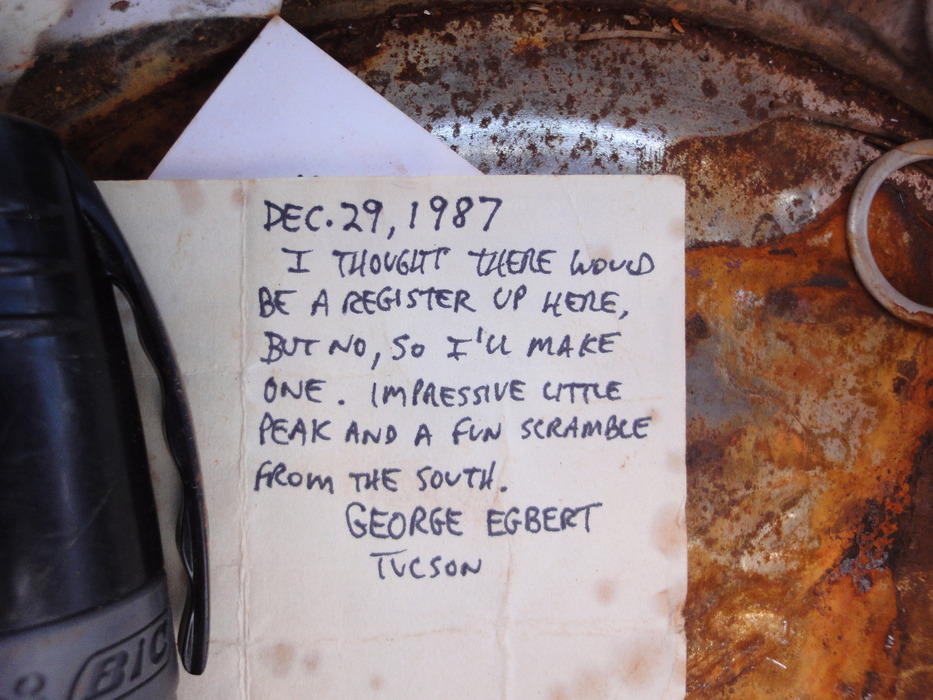 DEC. 29, 1987
I THOUGHT THERE WOULD
BE A REGISTER UP HERE,
BUT NO, SO I'LL MAKE
ONE. IMPRESSIVE LITTLE
PEAK AND A FUN SCRAMBLE
FROM THE SOUTH.
GEORGE EGBERT
TUCSON
BIC